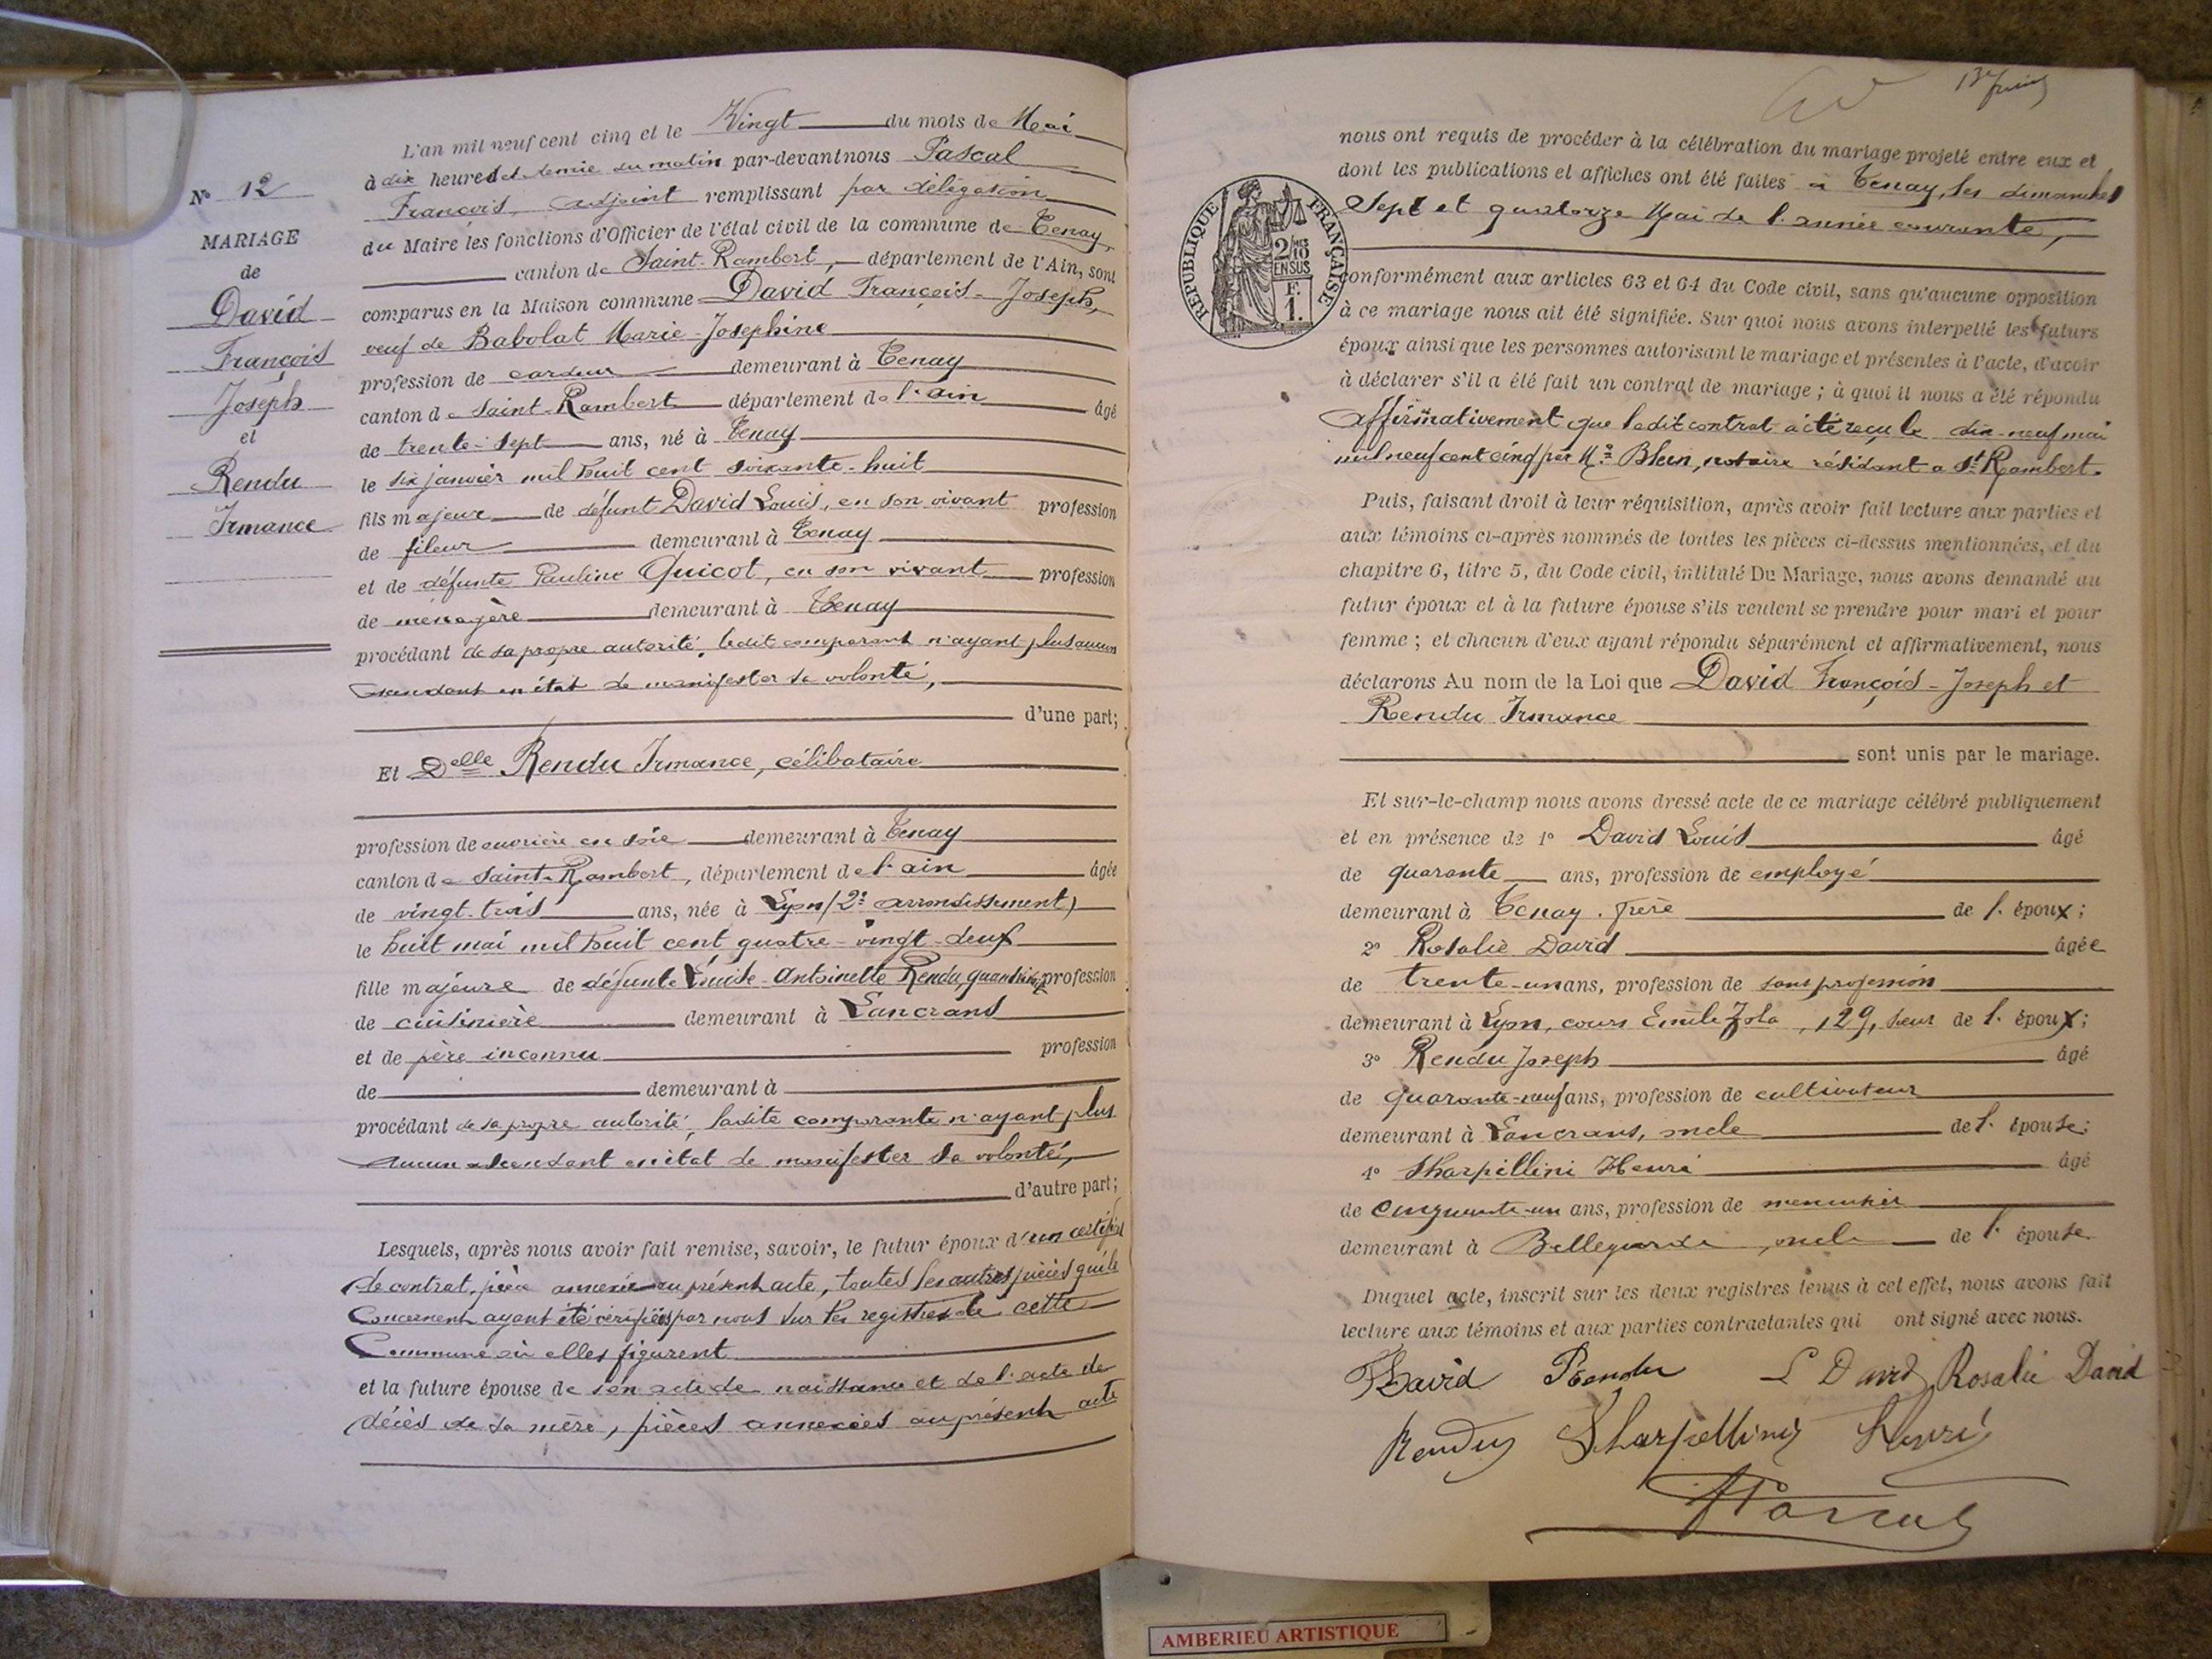 N° 12
MARIAGE
de
David
François
Joseph
et
Rendu
Irmance
L'an mil neuf cent cinq et le Vingt du mois de Mai
à dix heures et demie du matin par-devant nous Pascal
François, adjoint remplissant par délégation
du Maire les fonctions d'Officier de l'état civil de la commune de Tenay,
canton de Saint-Rambert, département de l'Ain, sont
comparus en la Maison commune David François-Joseph,
veuf de Babolat Marie-Josephine
profession de cardeur demeurant à Tenay
canton de Saint-Rambert département de l'ain âgé
de trente-sept ans, né à Tenay
le six janvier mil huit cent soixante-huit
fils majeur de défunt David Louis, en son vivant profession
de fileur demeurant à Tenay
et de défunte Pauline Quicot, en son vivant profession
de ménagère demeurant à Tenay
procédant de sa propre autorité, ledit comparant n'ayant plus aucun
ascendant en état de manifester sa volonté,
d'une part;
Et Delle Rendu Irmance, célibataire
profession de ouvrière en soie demeurant à Tenay
canton de Saint-Rambert, département de l'ain âgée
de vingt-trois ans, née à Lyon (2e arrondissement)
le huit mai mil huit cent quatre-vingt-deux
fille majeure de défunte Louise-Antoinette Rendu, quand vivait profession
de cuisinière demeurant à Lancrans
et de père inconnu profession
de demeurant à
procédant de sa propre autorité, ladite comparante n'ayant plus
aucun ascendant en état de manifester sa volonté,
d'autre part;
Lesquels, après nous avoir fait remise, savoir, le futur époux d'un certificat
de contrat, pièce annexée au présent acte, toutes les autres pièces qui le
Concernent ayant été vérifiées par nous sur les registres de cette
Commune où elles figurent
et la future épouse de son acte de naissance et de l'acte de
décès de sa mère, pièces annexées au présent acte
nous ont requis de procéder à la célébration du mariage projeté entre eux et
dont les publications et affiches ont été faites à Tenay, les dimanches
Sept et quatorze Mai de l'année courante,
REPUBLIQUE FRANÇAISE
2/10 MES
EN SUS
F.
1.
conformément aux articles 63 et 64 du Code civil, sans qu'aucune opposition
à ce mariage nous ait été signifiée. Sur quoi nous avons interpellé les futurs
époux ainsi que les personnes autorisant le mariage et présentes à l'acte, d'avoir
à déclarer s'il a été fait un contrat de mariage ; à quoi il nous a été répondu
affirmativement que ledit contrat a été reçu le dix-neuf mai
mil neuf cent cinq par Me Blein, notaire résidant a St Rambert.
Puis, faisant droit à leur réquisition, après avoir fait lecture aux parties et
aux témoins ci-après nommés de toutes les pièces ci-dessus mentionnées, et du
chapitre 6, titre 5, du Code civil, intitulé Du Mariage, nous avons demandé au
futur époux et à la future épouse s'ils veulent se prendre pour mari et pour
femme ; et chacun d'eux ayant répondu séparément et affirmativement, nous
déclarons Au nom de la Loi que David François-Joseph et
Rendu Irmance
sont unis par le mariage.
Et sur-le-champ nous avons dressé acte de ce mariage célébré publiquement
et en présence de 1° David Louis âgé
de quarante ans, profession de employé
demeurant à Tenay, frère de l'époux;
2° Rosalie David âgée
de trente-un ans, profession de sans profession
demeurant à Lyon, cours Emile Zola, 129, sœur de l'époux;
3° Rendu Joseph âgé
de quarante-neuf ans, profession de cultivateur
demeurant à Lancrans, oncle de l'épouse;
4° Sharpillini Henri âgé
de cinquante-un ans, profession de menuisier
demeurant à Bellegarde, oncle de l'épouse
Duquel acte, inscrit sur les deux registres tenus à cet effet, nous avons fait
lecture aux témoins et aux parties contractantes qui ont signé avec nous.
David Rendu L David Rosalie David
Rendu Sharpellini Henri
Pascal
AMBERIEU ARTISTIQUE